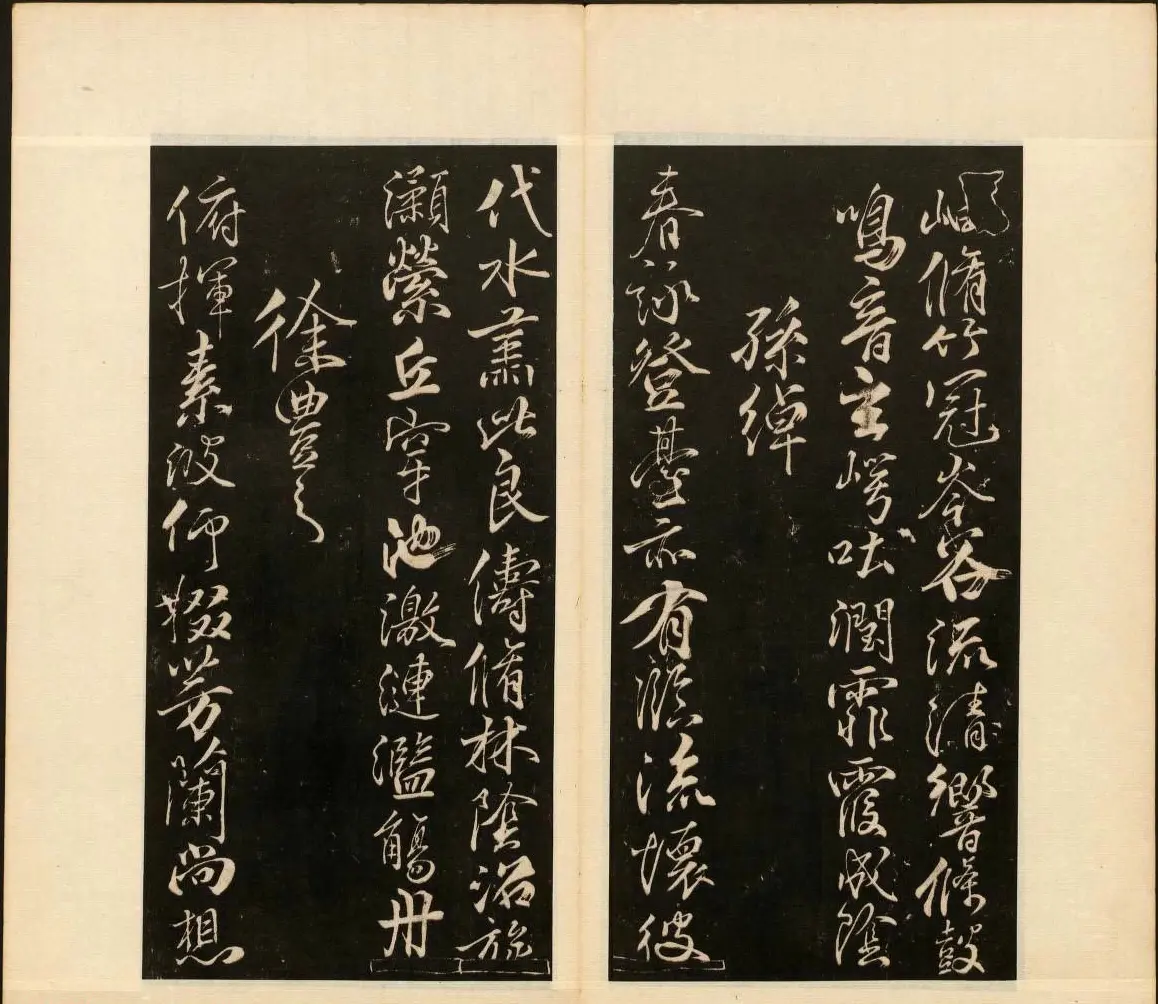 岨脩竹冠岑谷流清響條鼓
鳴音玄崿吐潤霏霞成陰
孫綽
春詠登臺亦有臨流懷彼
代水肅此良儔脩林陰沼旋
瀨縈丘穿池激漣濫觴舟
徐豐之
俯揮素波仰掇芳蘭尚想